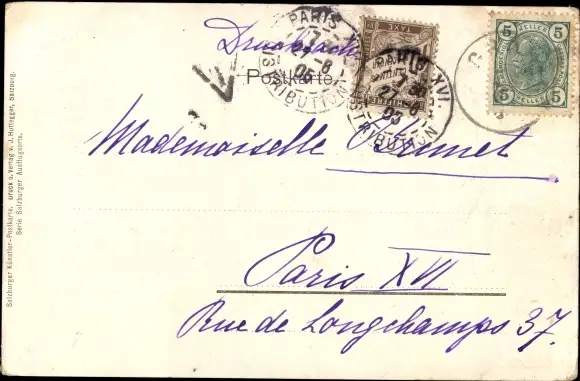 Drucksache
Postkarte.
PARIS XVI
DISTRIBUTION
PARIS XVI.
DISTRIBUTION
5 HELLER 5
5 HELLER 5
Mademoiselle
Paris XVI
Rue de Longchamps 37.
Salzburger Künstler-Postkarte. Druck u. Verlag v. J. Huttegger, Salzburg.
Serie Salzburger Ausflugsorte.